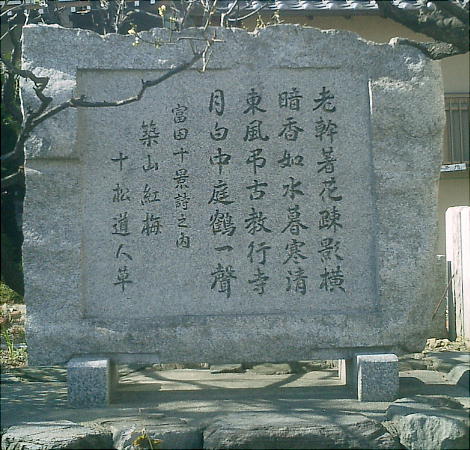 老幹著花疎影橫
暗香如水暮寒清
東風弔古教行寺
月白中庭鶴一聲
富田十景詩之內
築山紅梅
十松道人草